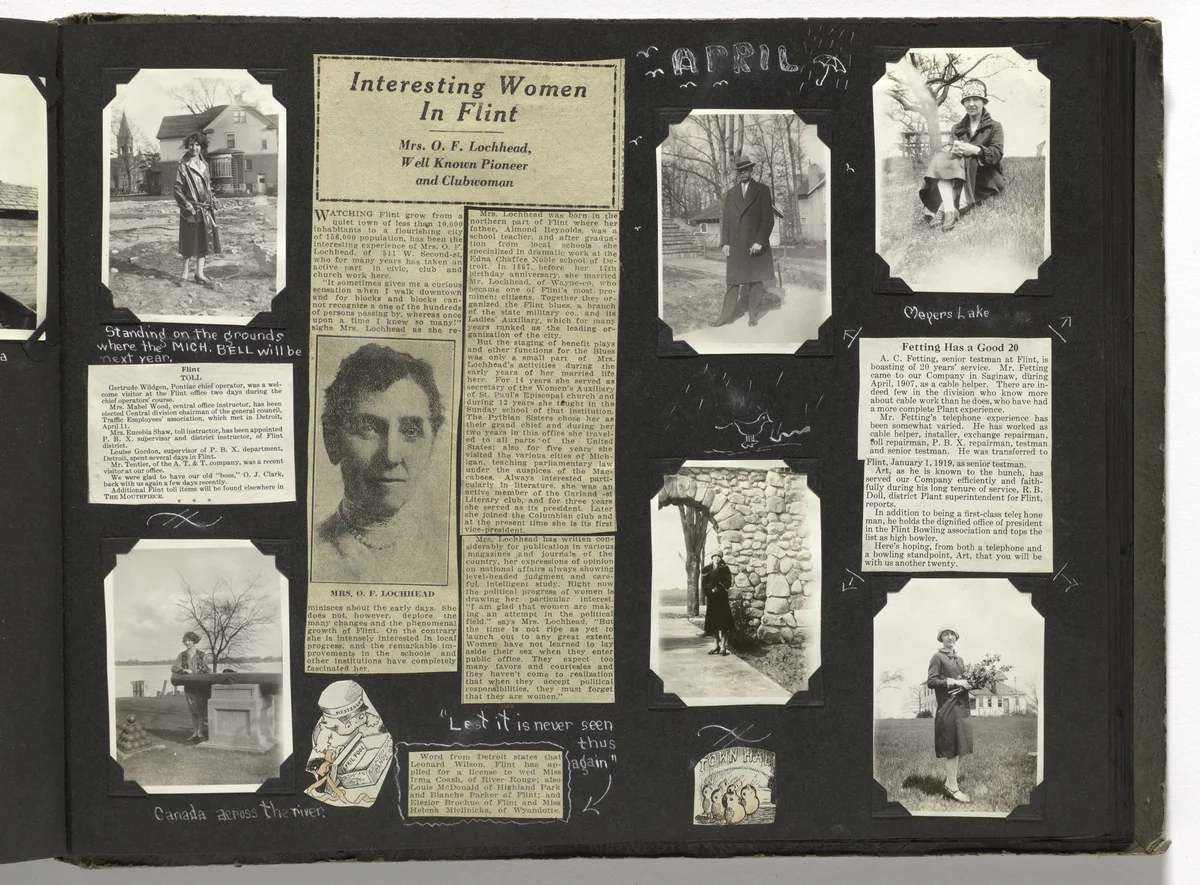 Standing on the grounds
where the MICH. BELL will be
next year.
Flint
TOLL
Gertrude Wildgen, Pontiac chief operator, was a wel-
come visitor at the Flint office two days during the
chief operators' course.
Mrs. Mabel Wood, central office instructor, has been
elected Central division chairman of the general council,
Traffic Employees' association, which met in Detroit,
April 11.
Mrs. Eucebia Shaw, toll instructor, has been appointed
P. B. X. supervisor and district instructor, of Flint
district.
Louise Gordon, supervisor of P. B. X. department,
Detroit, spent several days in Flint.
Mr. Tentler, of the A. T. & T. company, was a recent
visitor at our office.
We were glad to have our old "boss," O. J. Clark,
back with us again a few days recently.
Additional Flint toll items will be found elsewhere in
THE MOUTHPIECE.
Canada across the river.
Interesting Women
In Flint
Mrs. O. F. Lochhead,
Well Known Pioneer
and Clubwoman
WATCHING Flint grow from a
quiet town of less than 10,000
inhabitants to a flourishing city
of 156,000 population, has been the
interesting experience of Mrs. O. F.
Lochhead, of 511 W. Second-st,
who for many years has taken an
active part in civic, club and
church work here.
"It sometimes gives me a curious
sensation when I walk downtown
and for blocks and blocks can-
not recognize a one of the hundreds
of persons passing by, whereas once
upon a time I knew so many!"
sighs Mrs. Lochhead as she re-
MRS. O. F. LOCHHEAD
minisces about the early days. She
does not, however, deplore the
many changes and the phenomenal
growth of Flint. On the contrary
she is intensely interested in local
progress, and the remarkable im-
provements in the schools and
other institutions have completely
fascinated her.
Mrs. Lochhead was born in the
northern part of Flint where her
father, Almond Reynolds, was a
school teacher, and after gradua-
tion from local schools she
specialized in dramatic work at the
Edna Chaffee Noble school of De-
troit. In 1887, before her 17th
birthday anniversary, she married
Mr. Lochhead, of Wayne-co, who
became one of Flint's most pro-
minent citizens. Together they or-
ganized the Flint blues, a branch
of the state military co., and its
Ladies' Auxiliary, which for many
years ranked as the leading or-
ganization of the city.
But the staging of benefit plays
and other functions for the Blues
was only a small part of Mrs.
Lochhead's activities during the
early years of her married life
here. For 14 years she served as
secretary of the Women's Auxiliary
of St. Paul's Episcopal church and
during 12 years she taught in the
Sunday school of that institution.
The Pythian Sisters chose her as
their grand chief and during her
two years in this office she travel-
ed to all parts of the United
States; also for five years she
visited the various cities of Mich-
igan, teaching parliamentary law
under the auspices of the Mac-
cabees. Always interested parti-
cularly in literature, she was an
active member of the Garland -st
Literary club, and for three years
she served as its president. Later
she joined the Columbian club and
at the present time she is its first
vice-president.
Mrs. Lochhead has written con-
siderably for publication in various
magazines and journals of the
country, her expressions of opinion
on national affairs always showing
level-headed judgment and care-
ful, intelligent study. Right now
the political progress of women is
drawing her particular interest.
"I am glad that women are mak-
ing an attempt in the political
field," says Mrs. Lochhead, "But
the time is not ripe as yet to
launch out to any great extent.
Women have not learned to lay
aside their sex when they enter
public office. They expect too
many favors and courtesies and
they haven't come to realization
that when they accept political
responsibilities, they must forget
that they are women."
MESSENGER
APRIL FOOL
"Lest it is never seen
thus
again"
Word from Detroit states that
Leonard Wilson, Flint has ap-
plied for a license to wed Miss
Irma Coash, of River Rouge; also
Louis McDonald of Highland Park
and Blanche Parker of Flint; and
Elezior Brochue of Flint and Miss
Helena Mielinicka, of Wyandotte.
APRIL
TOWN HALL
Meyers Lake
Fetting Has a Good 20
A. C. Fetting, senior testman at Flint, is
boasting of 20 years' service. Mr. Fetting
came to our Company in Saginaw, during
April, 1907, as a cable helper. There are in-
deed few in the division who know more
about cable work than he does, who have had
a more complete Plant experience.
Mr. Fetting's telephone experience has
been somewhat varied. He has worked as
cable helper, installer, exchange repairman,
toll repairman, P. B. X. repairman, testman
and senior testman. He was transferred to
Flint, January 1, 1919, as senior testman.
Art, as he is known to the bunch, has
served our Company efficiently and faith-
fully during his long tenure of service, R. B.
Doll, district Plant superintendent for Flint,
reports.
In addition to being a first-class telephone
man, he holds the dignified office of president
in the Flint Bowling association and tops the
list as high bowler.
Here's hoping, from both a telephone and
a bowling standpoint, Art, that you will be
with us another twenty.